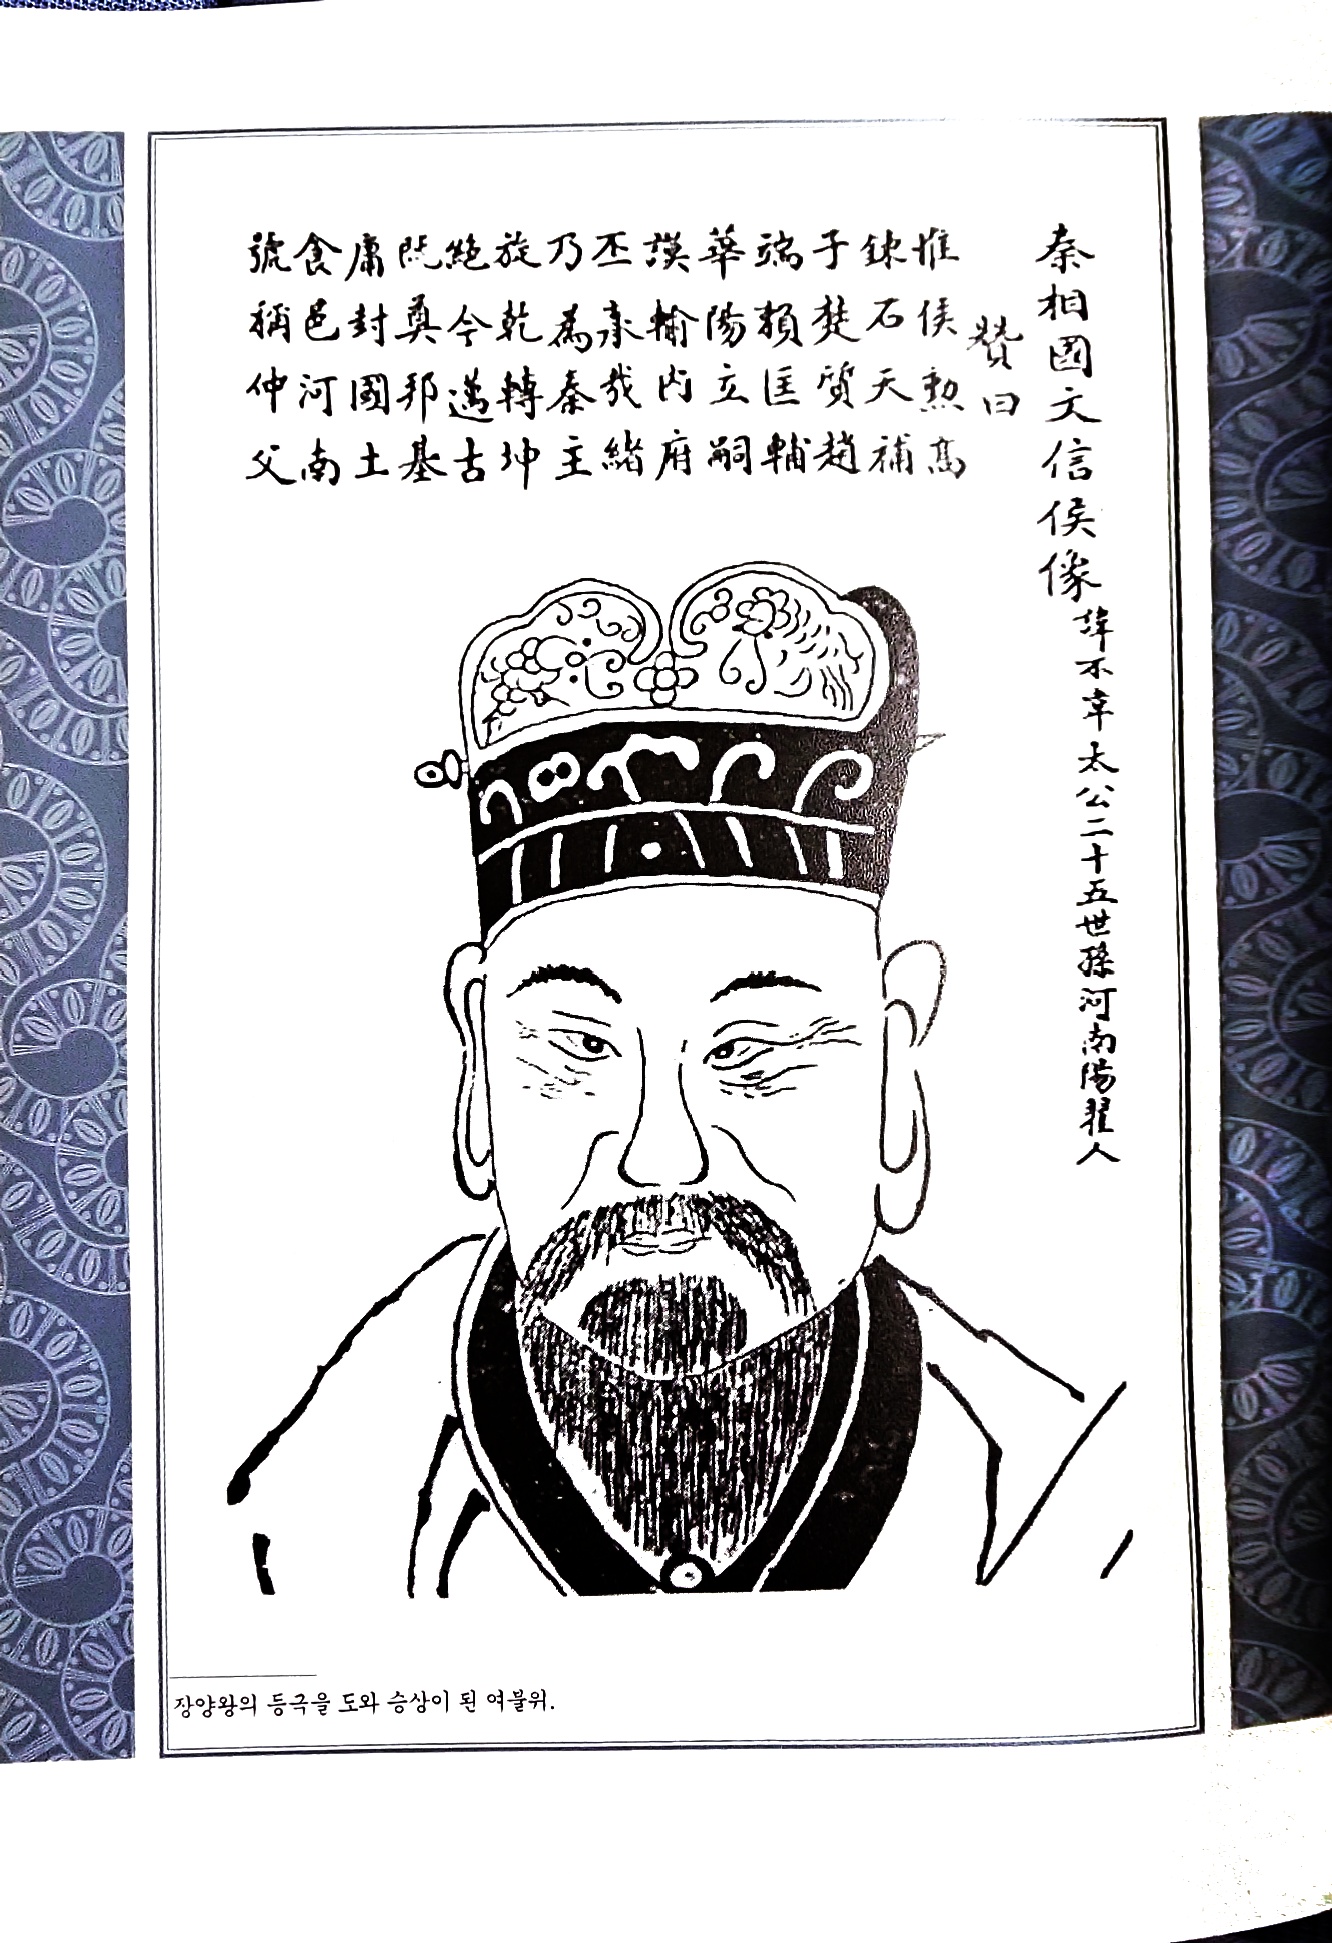 秦相國文信侯像 諱不韋太公二十五世孫河南陽翟人
贊曰
惟侯勲髙
鍊石天補
子楚質趙
端賴匡輔
華陽立嗣
謨輸内府
丕承哉緒
乃為秦主
旋乾轉坤
絶今邁古
既奠邦基
庸封國土
食邑河南
號稱仲父
장양왕의 등극을 도와 승상이 된 여불위.